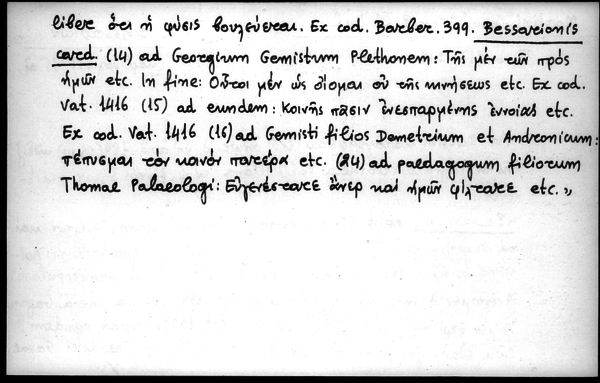 liber ὅτι ἡ φύσις βουλεύεται. Ex cod. Barber. 399. Bessarionis
card. (14) ad Georgium Gemistum Plethonem: Τῆς μέν τῶν πρός
ἡμῶν etc. In fine: Οὗτοι μέν ὡς οἶομαι οὐ τῆς κινήσεως etc. Ex cod.
Vat. 1416 (15) ad eundem: Κοινῆς πᾶσιν ἐνεσπαρμένης ἐννοίας etc.
Ex cod. Vat. 1416 (16) ad Gemisti filios Demetrium et Andronicum:
πέπυσμαι τόν κοινόν πατέρα etc. (24) ad paedagogum filiorum
Thomae Palaeologi: Εὐγενέστατε ἄνερ καί ἡμῶν φίλτατε etc. »